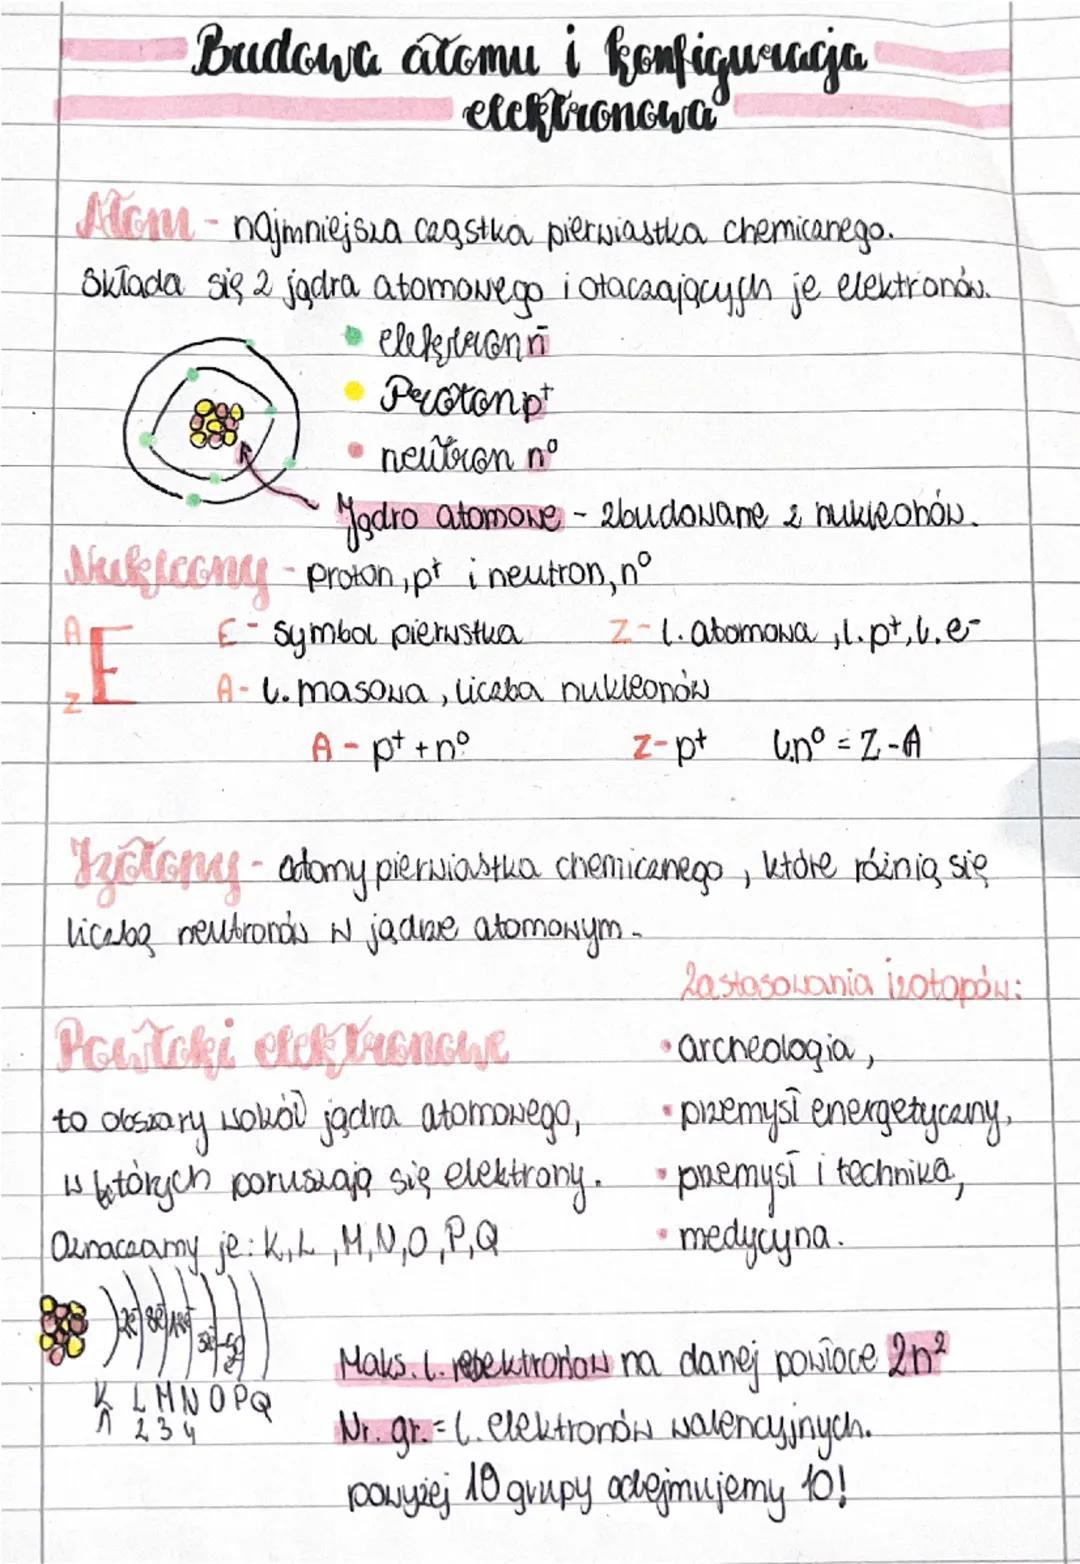 Budowa atomu i konfiguracja
elektronowa
Atom - najmniejsza cząstka pierwiastka chemicznego.
Składa się z jądra atomowego i otaczających je elektronów.
elektron
Proton p⁺
neutron n⁰
Jądro atomowe - zbudowane z nukleonów.
Nukleony - proton, p⁺ i neutron, n⁰
A
E
Z
E - symbol pierwstka Z - l. atomowa, l. p⁺, l. e⁻
A - l. masowa, liczba nukleonów
A - p⁺ + n⁰ Z - p⁺ l.n⁰ = Z - A
- atomy pierwiastka chemicznego, które różnią się
liczbą neutronów w jądrze atomowym.
Zastosowania izotopów:
Powłoki elektronowe
• archeologia,
to obszary wokół jądra atomowego,
• przemysł energetyczny,
w których poruszają się elektrony.
• przemysł i technika,
Oznaczamy je: K, L, M, N, O, P, Q
• medycyna.
K L M N O P Q
1 2 3 4
Maks. l. na danej powłoce 2n²
Nr. gr. = l. elektronów walencyjnych.
powyżej 10 grupy odejmujemy 10!